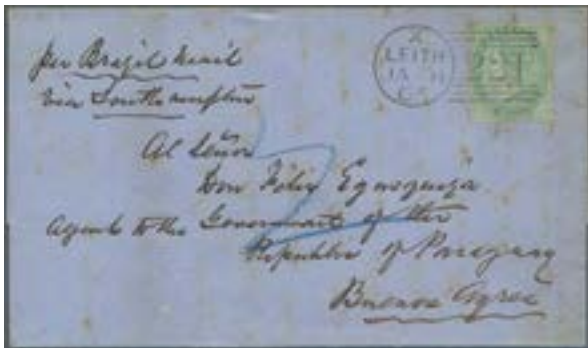 per Brazil Mail
via Southampton
A
LEITH
JA
65
Al Señor
Don Félix Egusquiza
Agent to the Government of the
Republic of Paraguay
Buenos Ayres